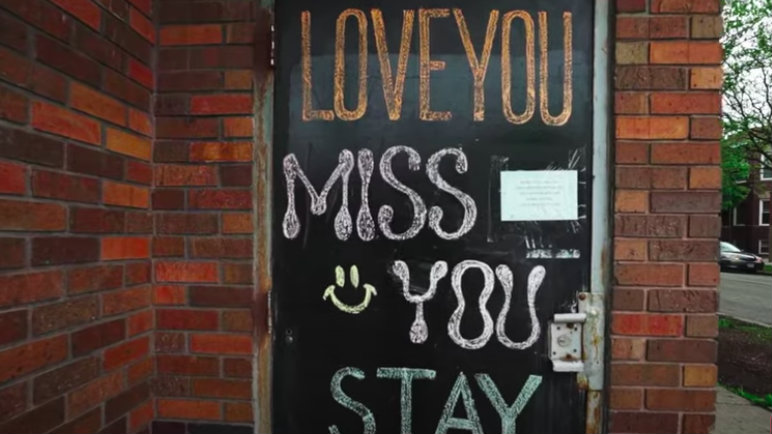 LOVE YOU
MISS
YOU
STAY